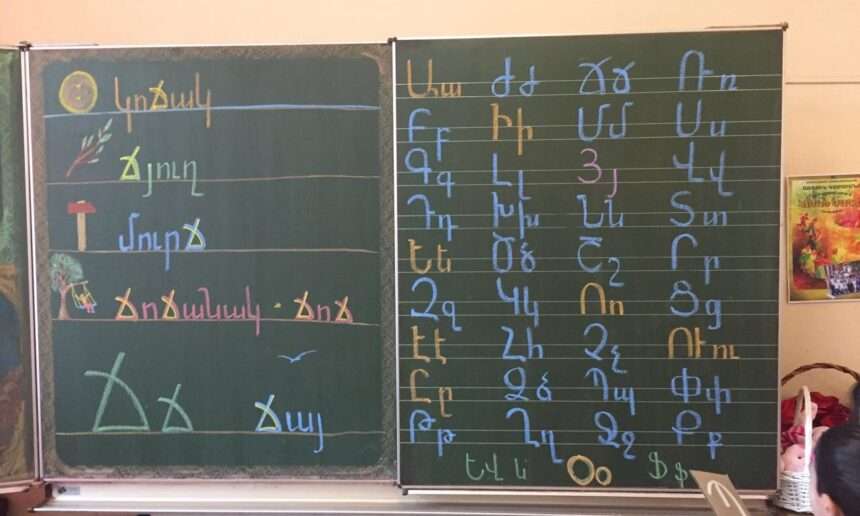 կոճակ
ճյուղ
մուրճ
ճոճանակ - ճոճ
Ճ ճ ճայ
Աա Ժժ Ճճ Ռռ
Բբ Իի Մմ Սս
Գգ Լլ Յյ Վվ
Դդ Խխ Նն Տտ
Եե Ծծ Շշ Րր
Զզ Կկ Ոո Ցց
Էէ Հհ Չչ ՈՒու
Ըը Ձձ Պպ Փփ
Թթ Ղղ Ջջ Քք
ԵՎ և Օօ Ֆֆ